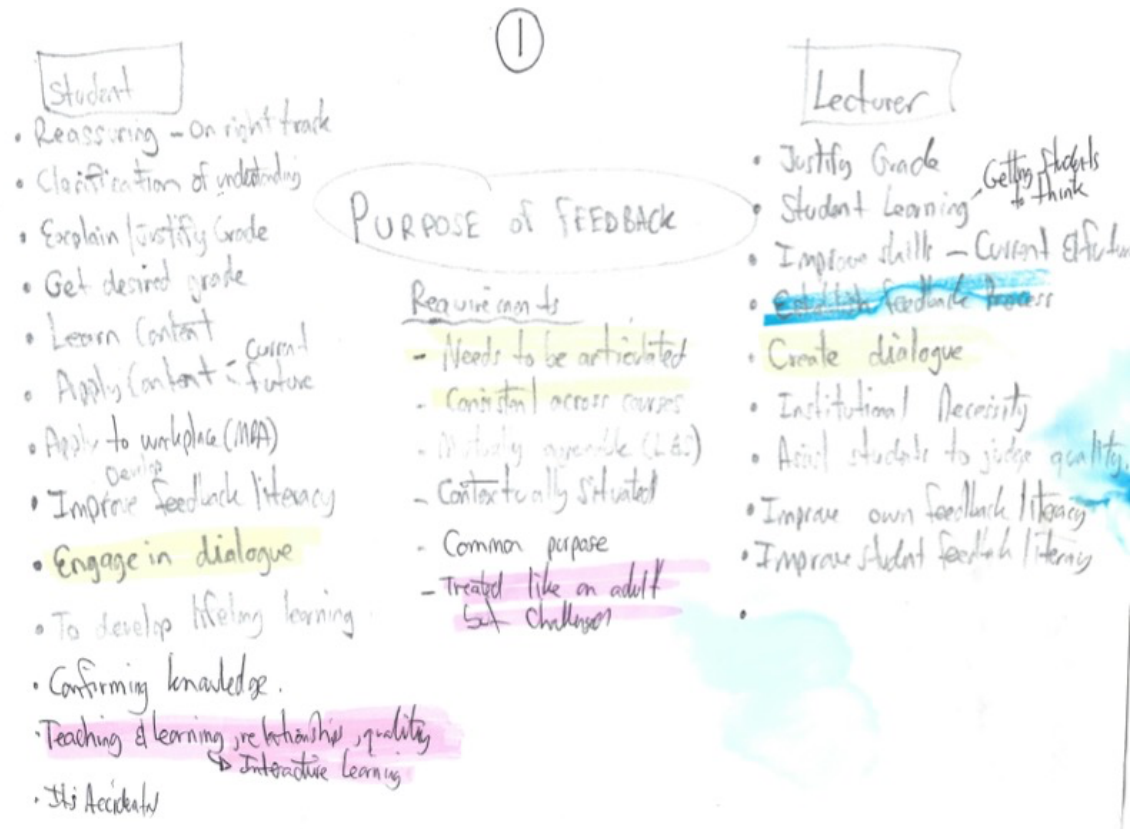 1
Student
• Reassuring - On right track
• Clarification of understanding
• Explain/Justify Grade
• Get desired grade
• Learn Content
• Apply Content - Current
future
• Apply to workplace (MPA)
Develop
• Improve feedback literacy
• Engage in dialogue
• To develop lifelong learning
• Confirming knowledge.
• Teaching & learning, relationship, quality
↳ Interactive Learning
• Its Accidental
PURPOSE of FEEDBACK
Requirements
- Needs to be articulated
- Consistent across courses
- Mutually agreeable
- Contextually situated
- Common purpose
- Treated like an adult
but challenged
Lecturer
• Justify Grade
• Student Learning - Getting students
to think
• Improve skills - Current & future
• Establish feedback Process
• Create dialogue
• Institutional Necessity
• Assist students to judge quality.
• Improve own feedback literacy
• Improve student feedback literacy
•